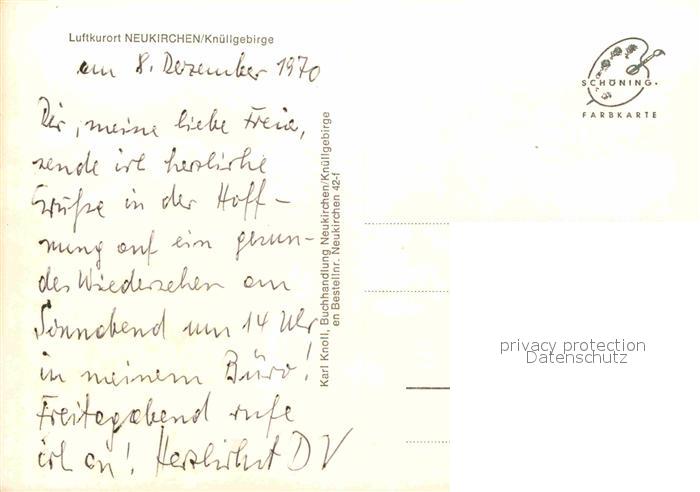 Luftkurort NEUKIRCHEN/Knüllgebirge
am 8. Dezember 1970
Dir, meine liebe Freia,
sende ich herzliche
Grüße in der Hoff-
nung auf ein gesun-
des Wiedersehen am
Sonnabend um 14 Uhr
in meinem Büro!
Freitagabend rufe
ich an! Herzlichst D V
Karl Knoll, Buchhandlung Neukirchen/Knüllgebirge
en Bestellnr. Neukirchen 42-f
SCHÖNING.
FARBKARTE
privacy protection
Datenschutz